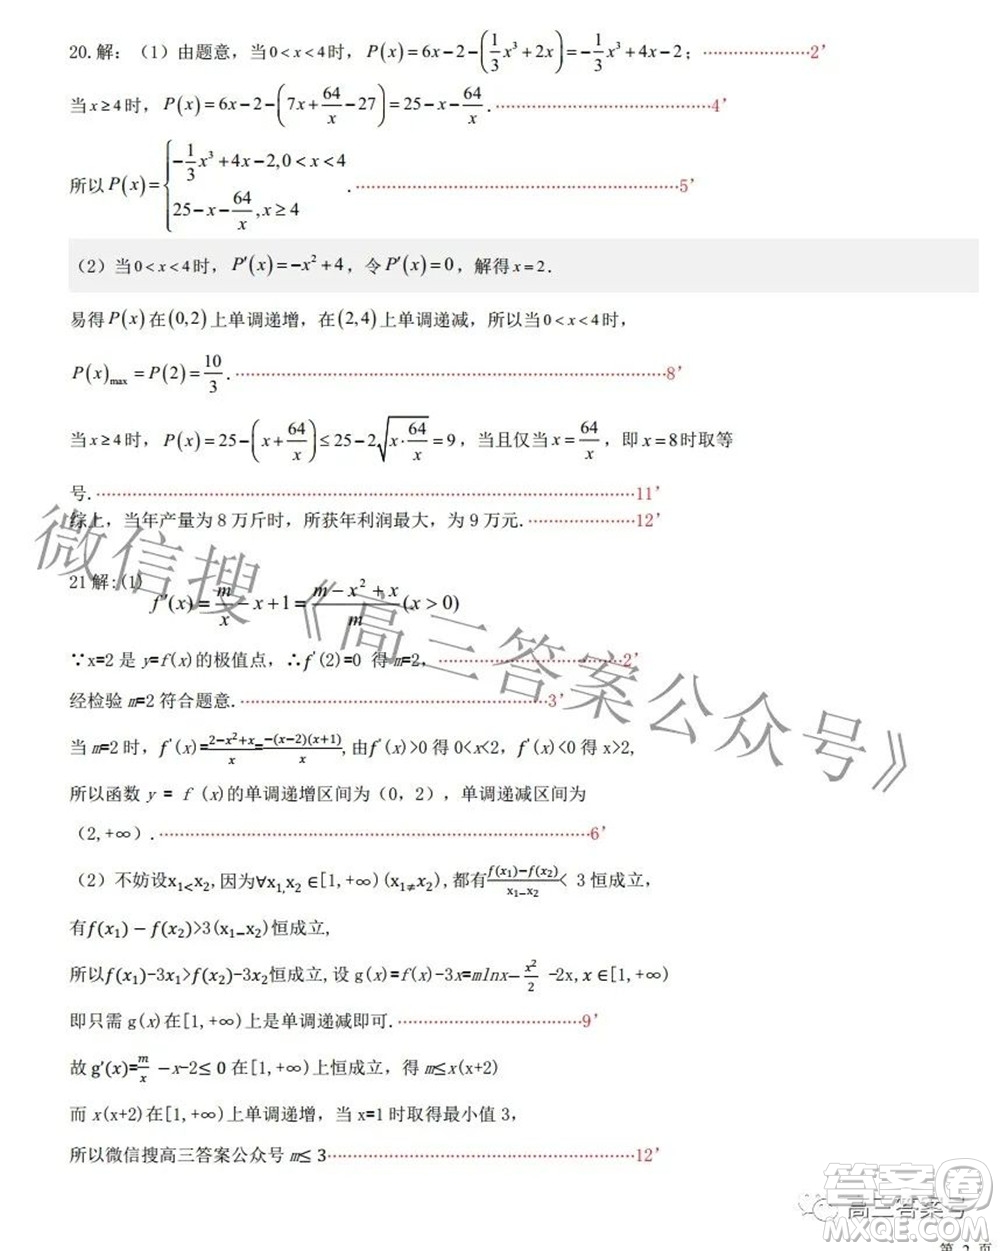 20.解：（1）由题意，当0<x<4时，P(x)=6x−2−(1/3x³+2x)=−1/3x³+4x−2；…………………2’
当x≥4时，P(x)=6x−2−(7x+64/x−27)=25−x−64/x.…………………4’
所以P(x)={−1/3x³+4x−2,0<x<4
25−x−64/x,x≥4.…………………5’
（2）当0<x<4时，P′(x)=−x²+4，令P′(x)=0，解得x=2.
易得P(x)在(0,2)上单调递增，在(2,4)上单调递减，所以当0<x<4时，
P(x)max=P(2)=10/3.…………………8’
当x≥4时，P(x)=25−(x+64/x)≤25−2√(x·64/x)=9，当且仅当x=64/x，即x=8时取等
号.…………………11’
综上，当年产量为8万斤时，所获年利润最大，为9万元.…………………12’
21解:(1)
f′(x)=m/x−x+1=(m−x²+x)/m(x>0)
∵x=2是y=f(x)的极值点，∴f′(2)=0 得m=2，…………………2’
经检验m=2符合题意.…………………3’
当m=2时，f′(x)=(2−x²+x)/x=−(x−2)(x+1)/x,由f′(x)>0得0<x<2，f′(x)<0得x>2,
所以函数 y = f (x)的单调递增区间为（0，2），单调递减区间为
（2,+∞）.…………………6’
（2）不妨设x₁<x₂,因为∀x₁,x₂∈[1,+∞)(x₁≠x₂),都有(f(x₁)−f(x₂))/(x₁−x₂)< 3恒成立，
有f(x₁)−f(x₂)>3(x₁−x₂)恒成立,
所以f(x₁)-3x₁>f(x₂)-3x₂恒成立,设g(x)=f(x)-3x=mlnx−x²/2 -2x,x∈[1,+∞)
即只需g(x)在[1,+∞)上是单调递减即可.…………………9’
故g′(x)=m/x −x-2≤0在[1,+∞)上恒成立，得m≤x(x+2)
而x(x+2)在[1,+∞)上单调递增，当x=1时取得最小值3，
所以微信搜高三答案公众号m≤3…………………12’
微信搜《高三答案公众号》
答案圈
高三答案号
MXQE.COM
第 2 页